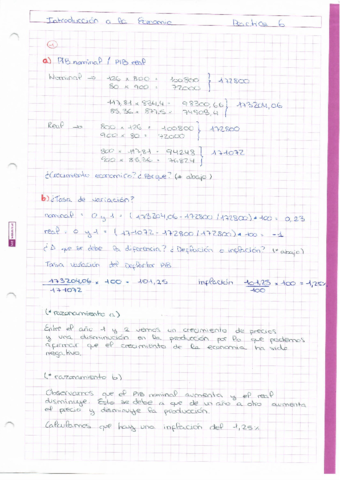 Introducción a la Economía Práctica 6
1
a) PIB nominal / PIB real
Nominal → 126 x 800 = 100800
80 x 900 = 72000 } 172800
= 98300,66
= } 173204,06
Real → 800 x 126 = 100800
900 x 80 = 72000 } 172800
800 x 117,81 = 94248
900 x 85,36 = 76824 } 171072
¿Crecimiento económico? ¿Porque? (* abajo)
b) ¿Tasa de variación?
nominal = 0 y 1 = (173204,06 - 172800 / 172800) * 100 = 0,23
real = 0 y 1 = (171072 - 172800 / 172800) * 100 = -1
¿A que se debe la diferencia? ¿Deflación o inflación? (* abajo)
Tasa variación del deflactor PIB
173204,06 * 100 = 101,25 inflación 101,25 * 100 = 1,25%
171072 100
(* razonamiento a)
Entre el año 1 y 2 vemos un crecimiento de precios
y una disminución en la producción por lo que podemos
afirmar que el crecimiento de la economía ha sido
negativa.
(* razonamiento b)
Observamos que el PIB nominal aumenta y el real
disminuye. Esto se debe a que de un año a otro aumenta
el precio y disminuye la producción.
Calculamos que hay una inflación del 1,25%